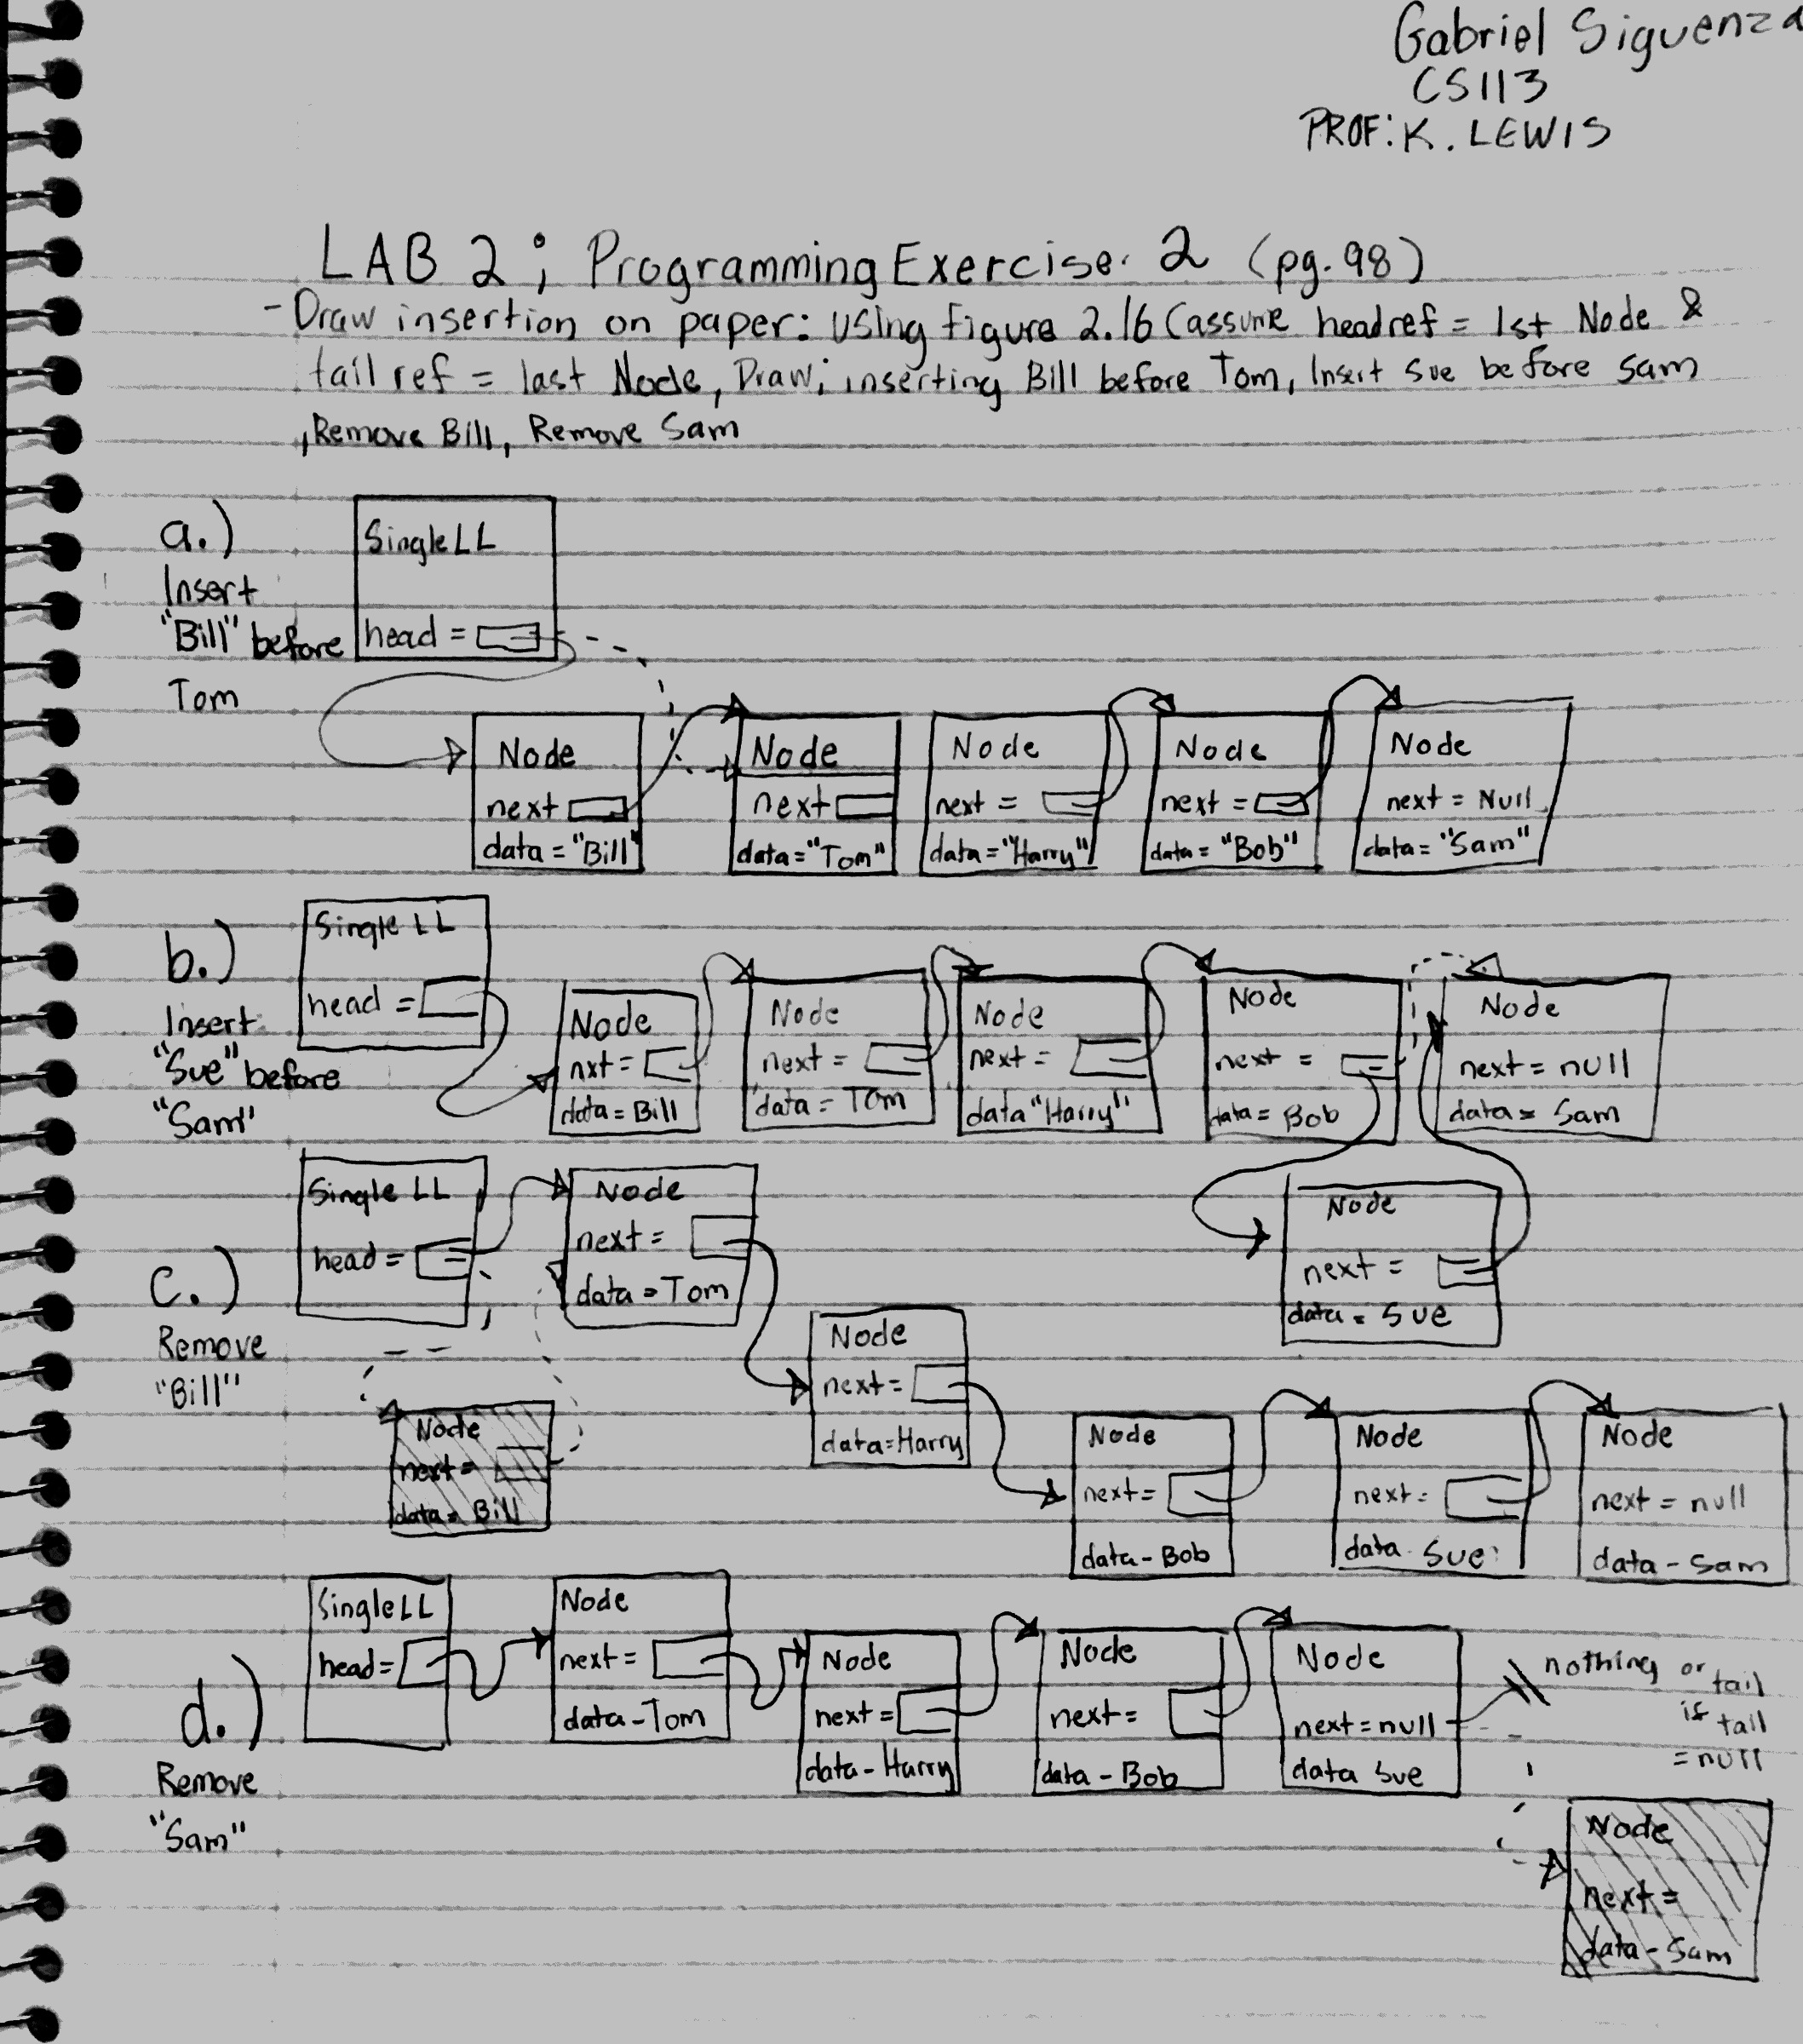 Gabriel Siguenza
CS113
PROF: K. LEWIS
LAB 2; Programming Exercise. 2 (pg. 98)
- Draw insertion on paper: using figure 2.16 (assume headref = 1st Node &
tail ref = last Node, Draw; inserting Bill before Tom, Insert Sue before Sam
, Remove Bill, Remove Sam
a.)
Insert
"Bill" before
Tom
SingleLL
head =
Node
next
data="Bill"
Node
next
data="Tom"
Node
next =
data="Harry"
Node
next =
data= "Bob"
Node
next = Null
data= "Sam"
b.)
Insert
"Sue" before
"Sam"
Single LL
head =
Node
nxt =
data=Bill
Node
next =
data = Tom
Node
next =
data "Harry"
Node
next =
data= Bob
Node
next = null
data= Sam
Node
next =
data= Sue
c.)
Remove
"Bill"
Single LL
head =
Node
next =
data = Tom
Node
next =
data= Bill
Node
next =
data=Harry
Node
next=
data-Bob
Node
next=
data- Sue
Node
next = null
data - Sam
d.)
Remove
"Sam"
SingleLL
head=
Node
next =
data-Tom
Node
next =
data-Harry
Node
next =
data-Bob
Node
next=null
data Sue
nothing or tail
if tail
= null
Node
next =
data- Sam